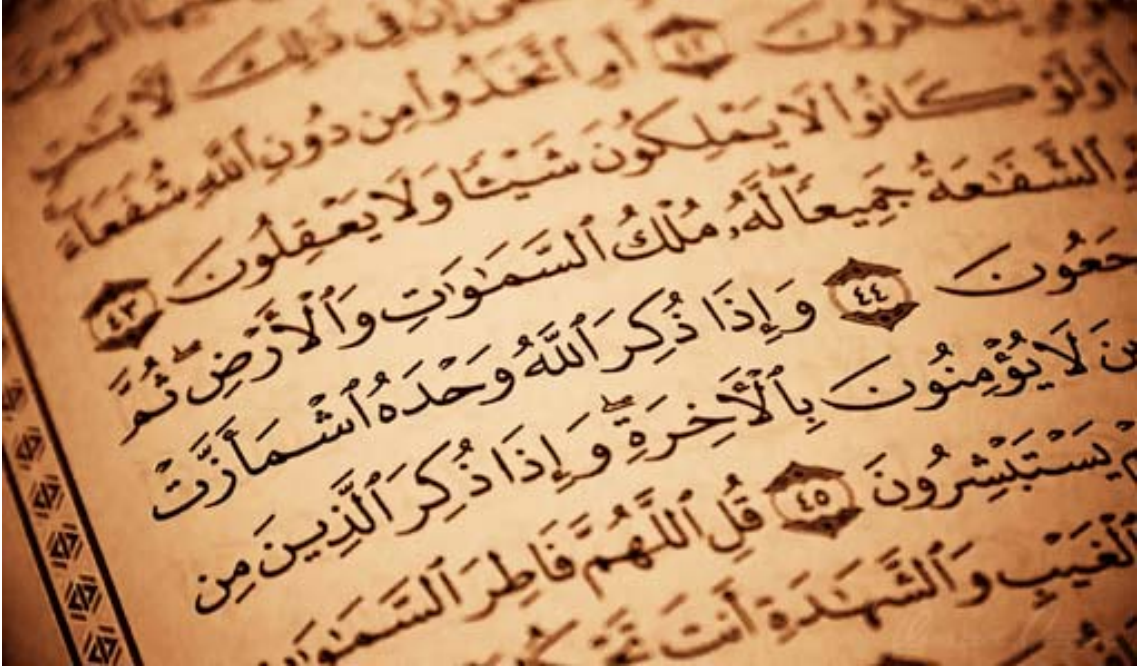 إِنَّ فِى ذَٰلِكَ لَءَايَـٰتٍ
يَتَفَكَّرُونَ ٤٢ أَمِ ٱتَّخَذُوا۟ مِن دُونِ ٱللَّهِ شُفَعَآءَ
أَوَلَوْ كَانُوا۟ لَا يَمْلِكُونَ شَيْـًٔا وَلَا يَعْقِلُونَ ٤٣
ٱلشَّفَـٰعَةُ جَمِيعًا ۖ لَّهُۥ مُلْكُ ٱلسَّمَـٰوَٰتِ وَٱلْأَرْضِ ۖ ثُمَّ
جَعُونَ ٤٤ وَإِذَا ذُكِرَ ٱللَّهُ وَحْدَهُ ٱشْمَأَزَّتْ
ينَ لَا يُؤْمِنُونَ بِٱلْـَٔاخِرَةِ ۖ وَإِذَا ذُكِرَ ٱلَّذِينَ مِن
مْ يَسْتَبْشِرُونَ ٤٥ قُلِ ٱللَّهُمَّ فَاطِرَ ٱلسَّمَـٰوَٰتِ
ٱلْغَيْبِ وَٱلشَّهَـٰدَةِ أَنتَ تَحْكُمُ